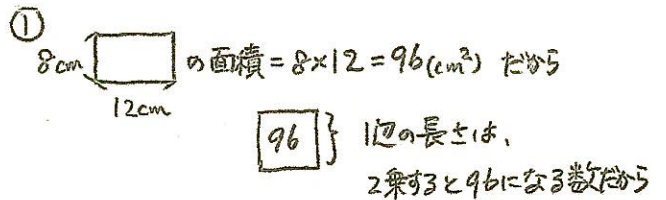 ①
8cm の面積=8×12=96(cm²) だから
12cm
96 } 1辺の長さは、
2乗すると96になる数だから